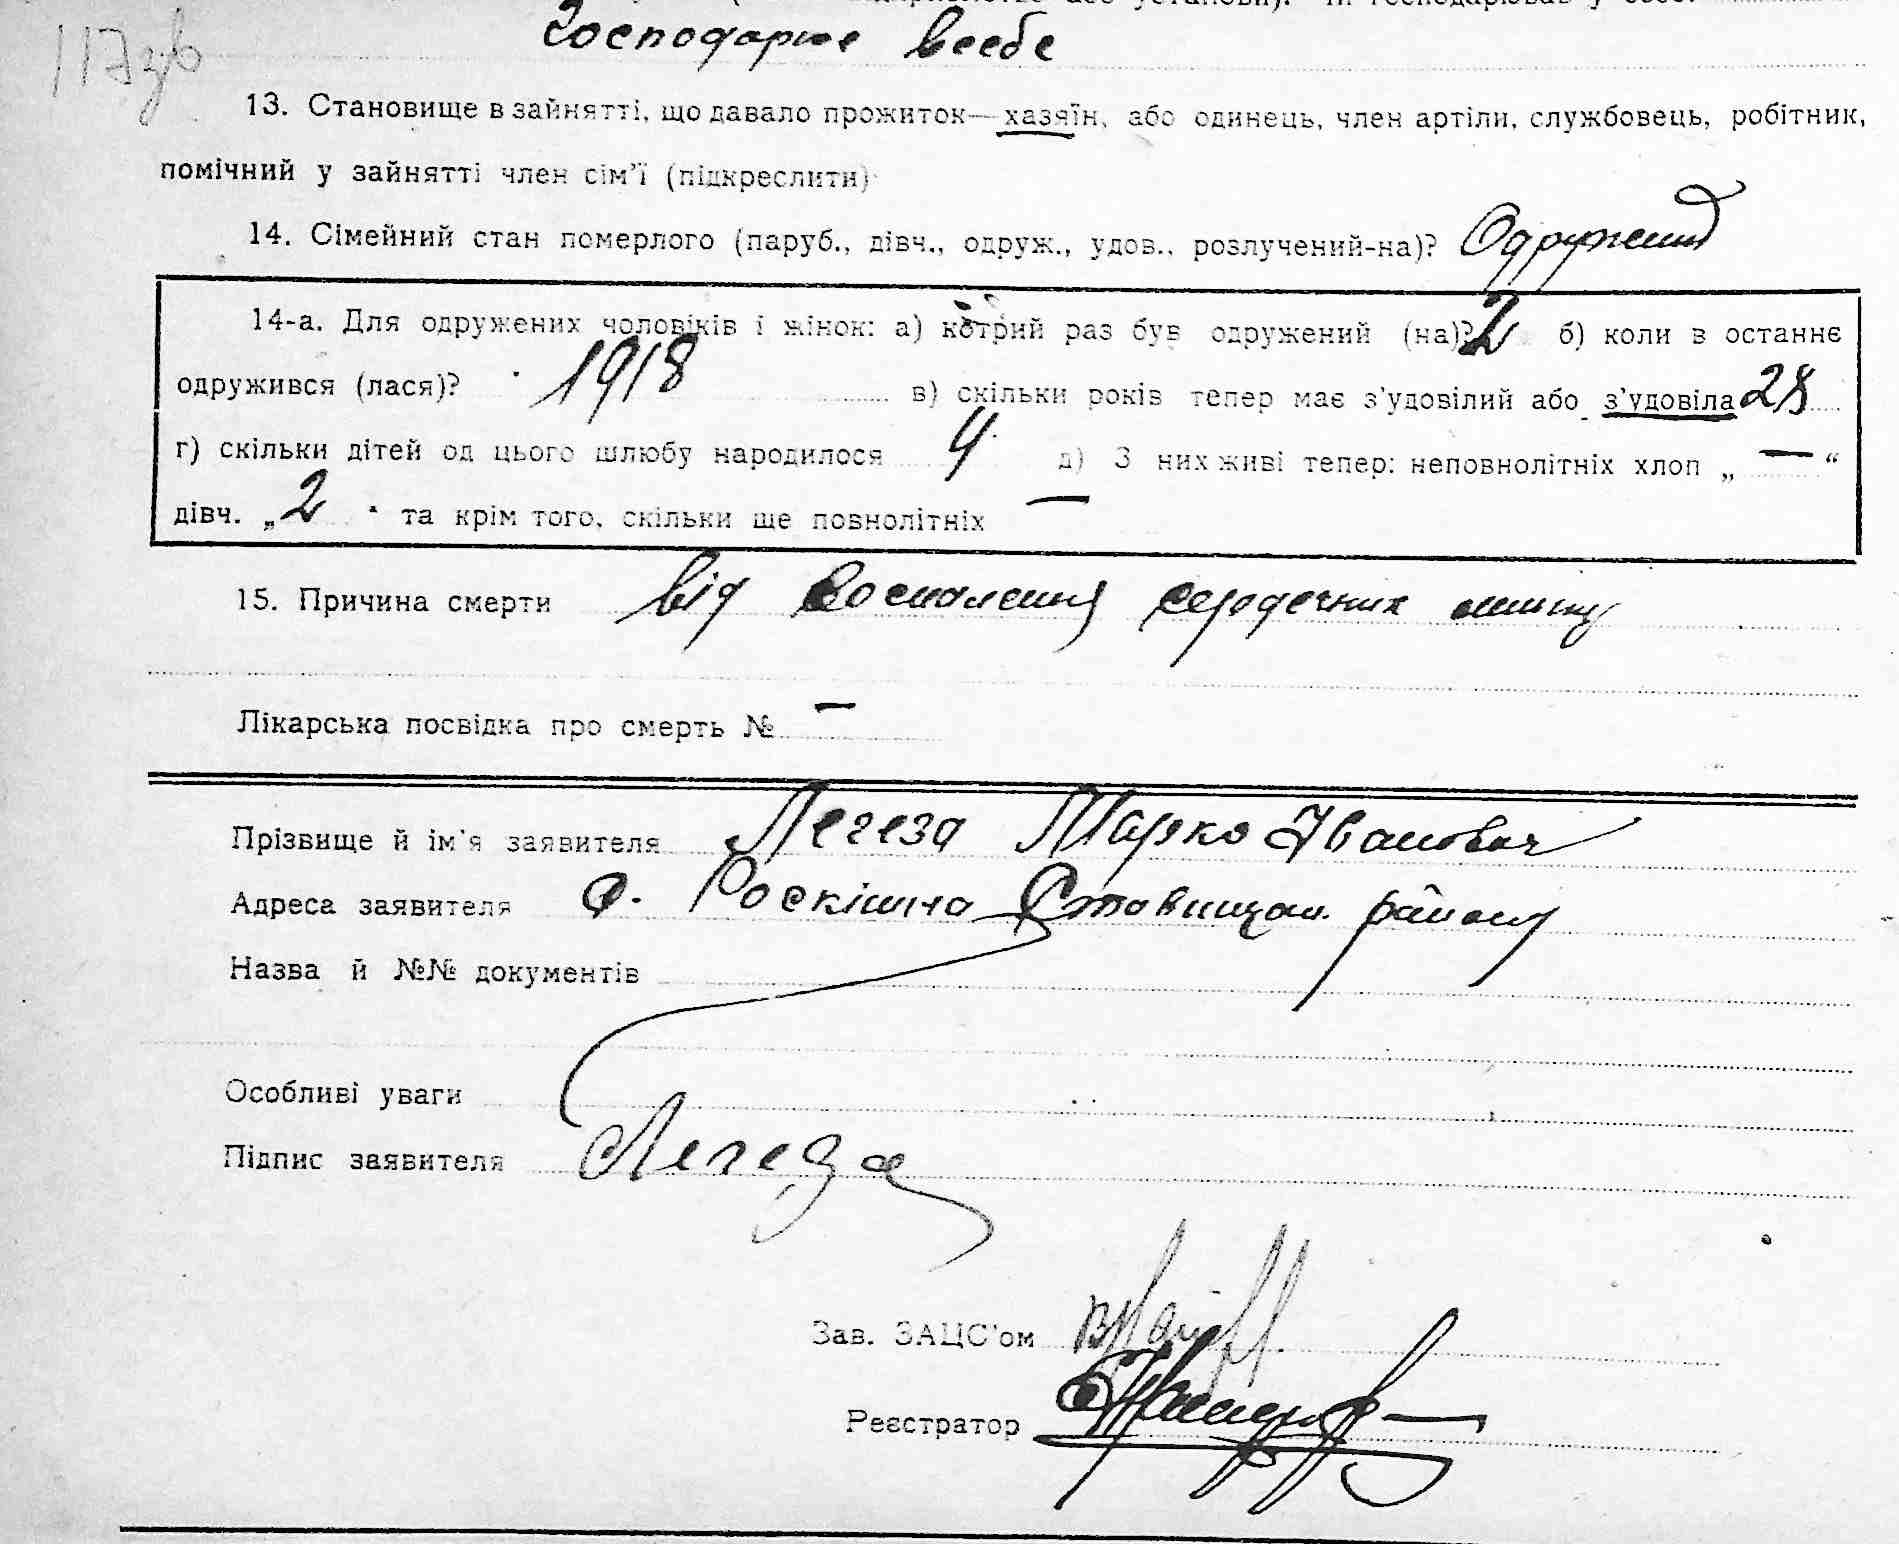 117зв
Господарює в себе
13. Становище в зайнятті, що давало прожиток—хазяїн, або одинець, член артіли, службовець, робітник,
помічний у зайнятті член сім'ї (підкреслити)
14. Сімейний стан померлого (паруб., дівч., одруж., удов., розлучений-на)? Одружений
14-а. Для одружених чоловіків і жінок: а) котрий раз був одружений (на)? 2 б) коли в останнє
одружився (лася)? 1918 в) скільки років тепер має з'удовілий або з'удовіла 28
г) скільки дітей од цього шлюбу народилося 4 д) З них живі тепер: неповнолітніх хлоп „ — “
дівч. „ 2 “ та крім того, скільки ще повнолітніх —
15. Причина смерти від воспаления сердечних мишц
Лікарська посвідка про смерть № —
Прізвище й ім'я заявителя Легеза Марко Іванович
Адреса заявителя с. Роскішна Ставищан. району
Назва й №№ документів
Особливі уваги
Підпис заявителя Легеза
Зав. ЗАЦС'ом
Реєстратор